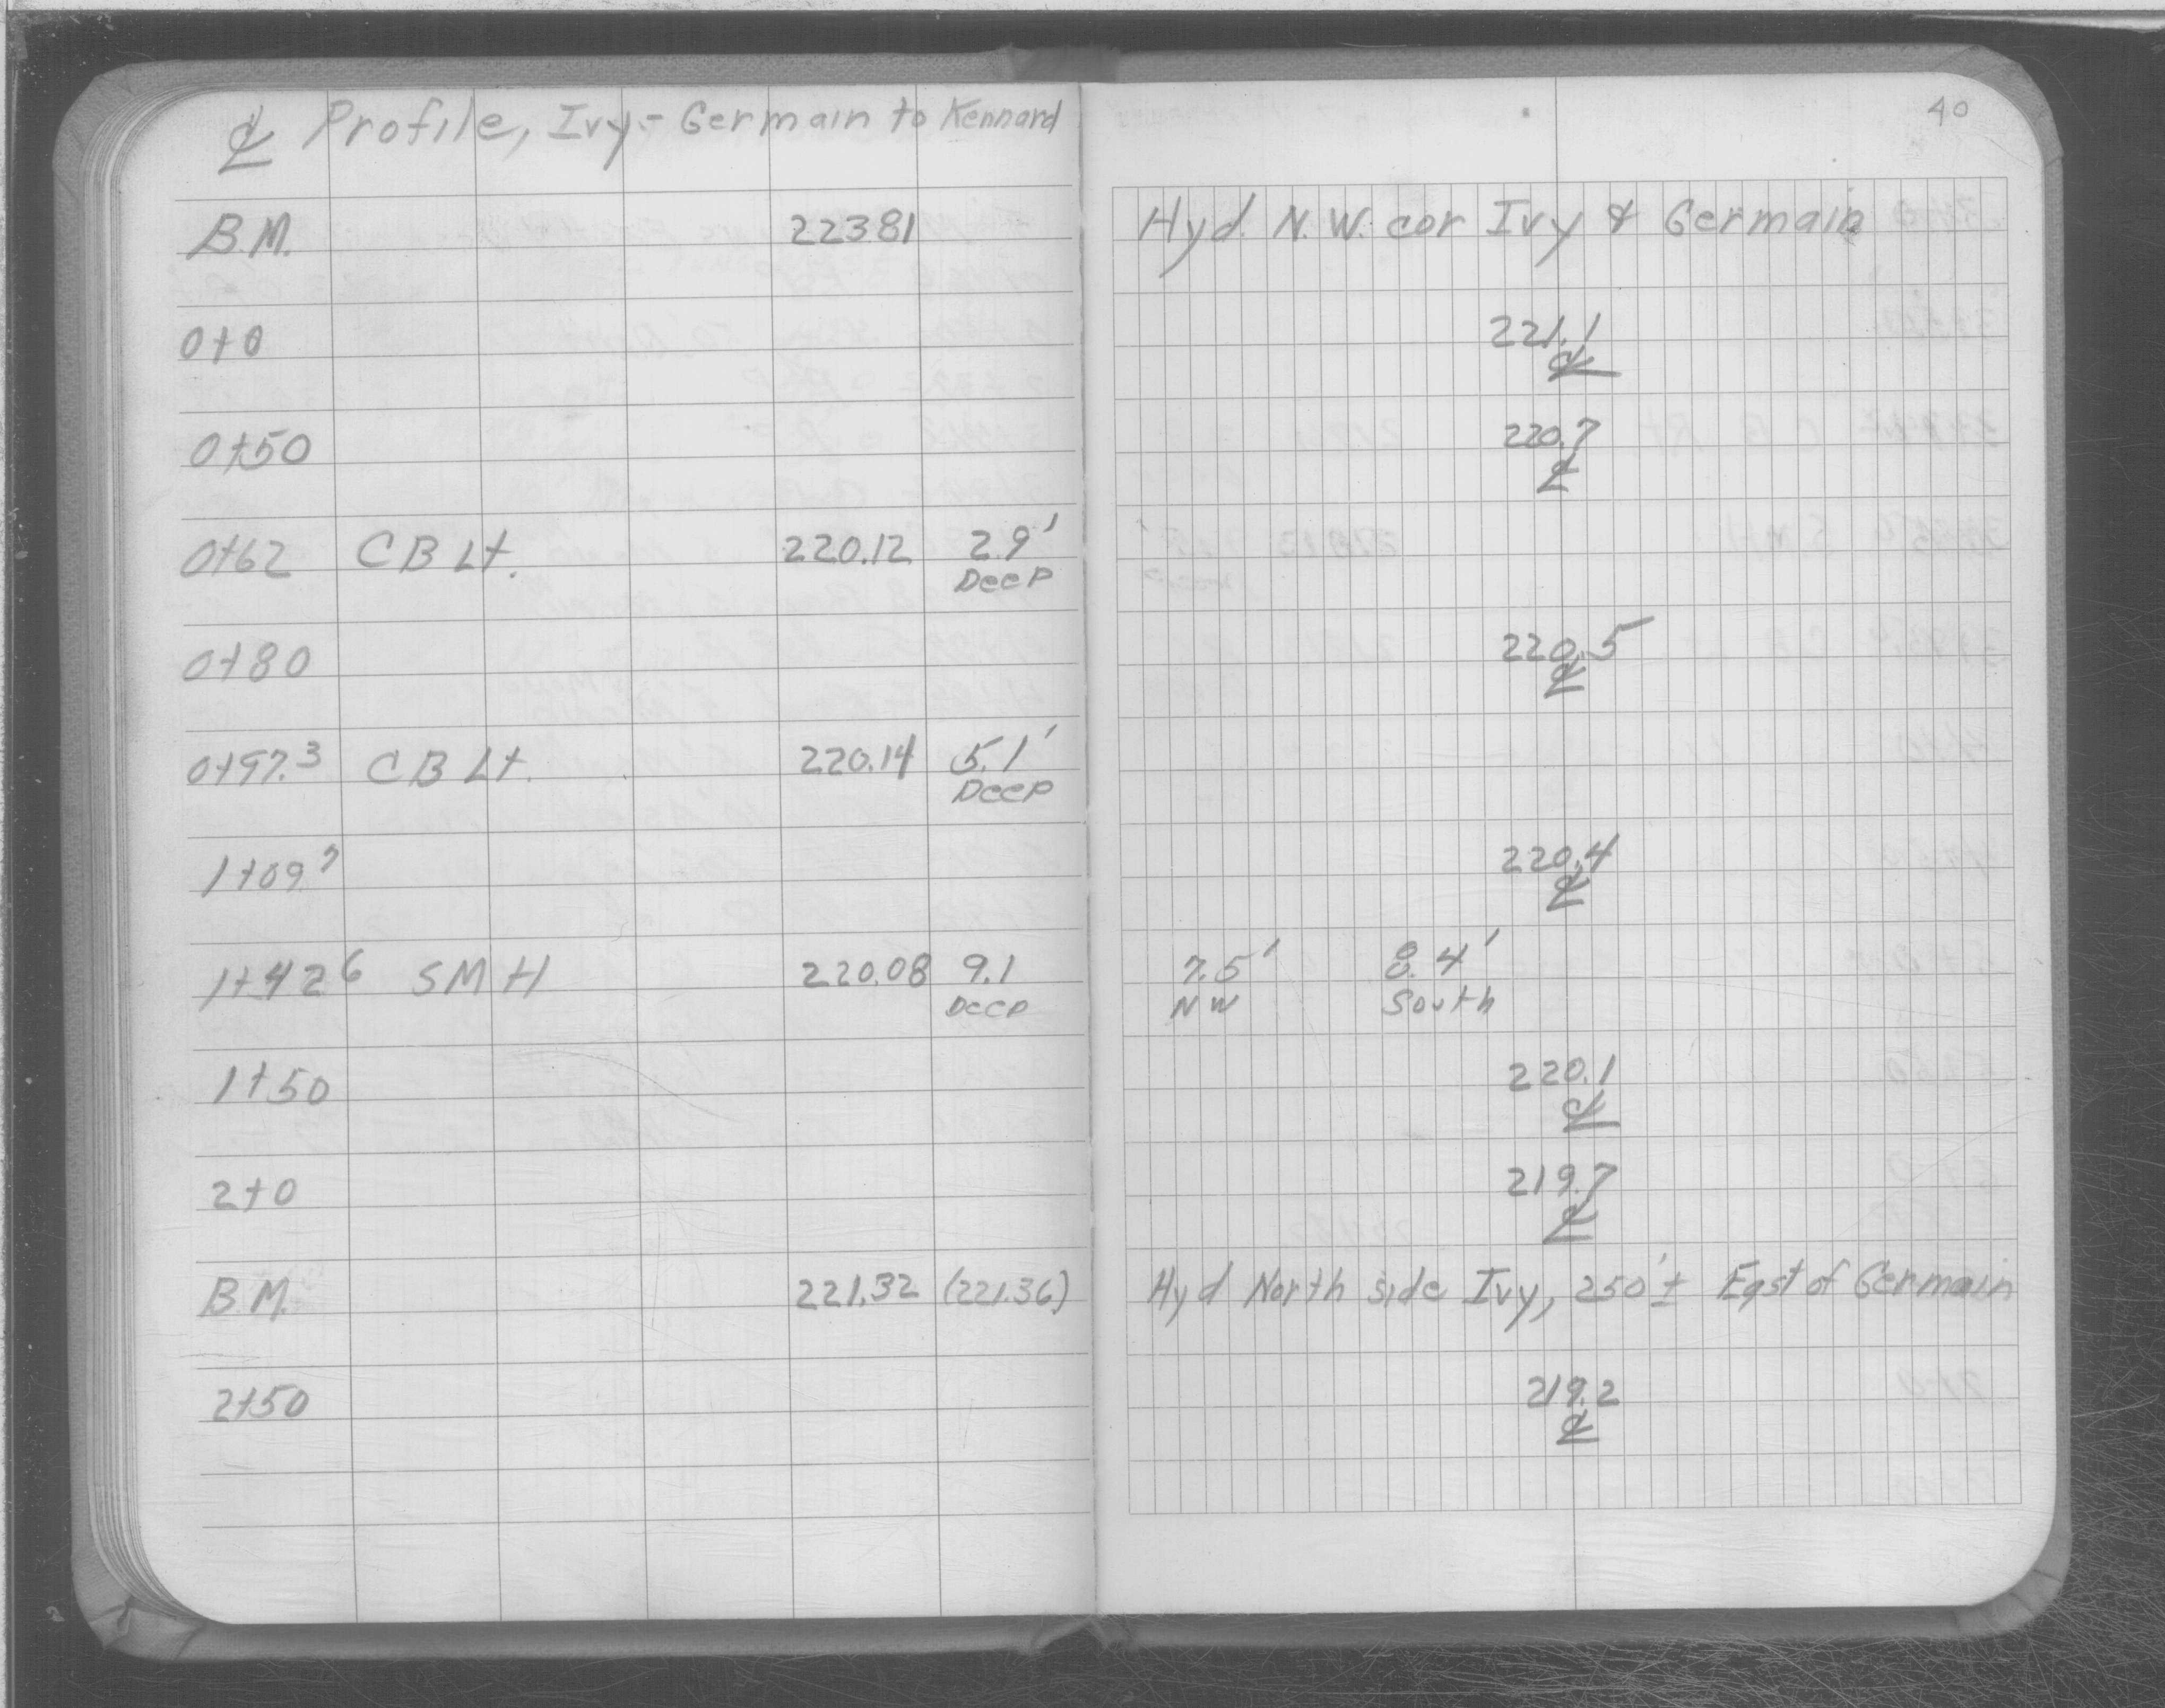 ℄ Profile, Ivy - Germain to Kennard
40
B.M. 223.81 Hyd. N.W. cor Ivy & Germain
0+0 221.1
℄
0+50 220.7
℄
0+62 CB Lt. 220.12 2.9'
Deep
0+80 220.5
℄
0+97.3 CB Lt. 220.14 5.1'
Deep
1+09 7 220.4
℄
1+42 6 SMH 220.08 9.1 7.5' 8.4'
Deep NW South
1+50 220.1
℄
2+0 219.7
℄
B.M. 221.32 (221.36) Hyd North side Ivy, 250'± East of Germain
2+50 219.2
℄